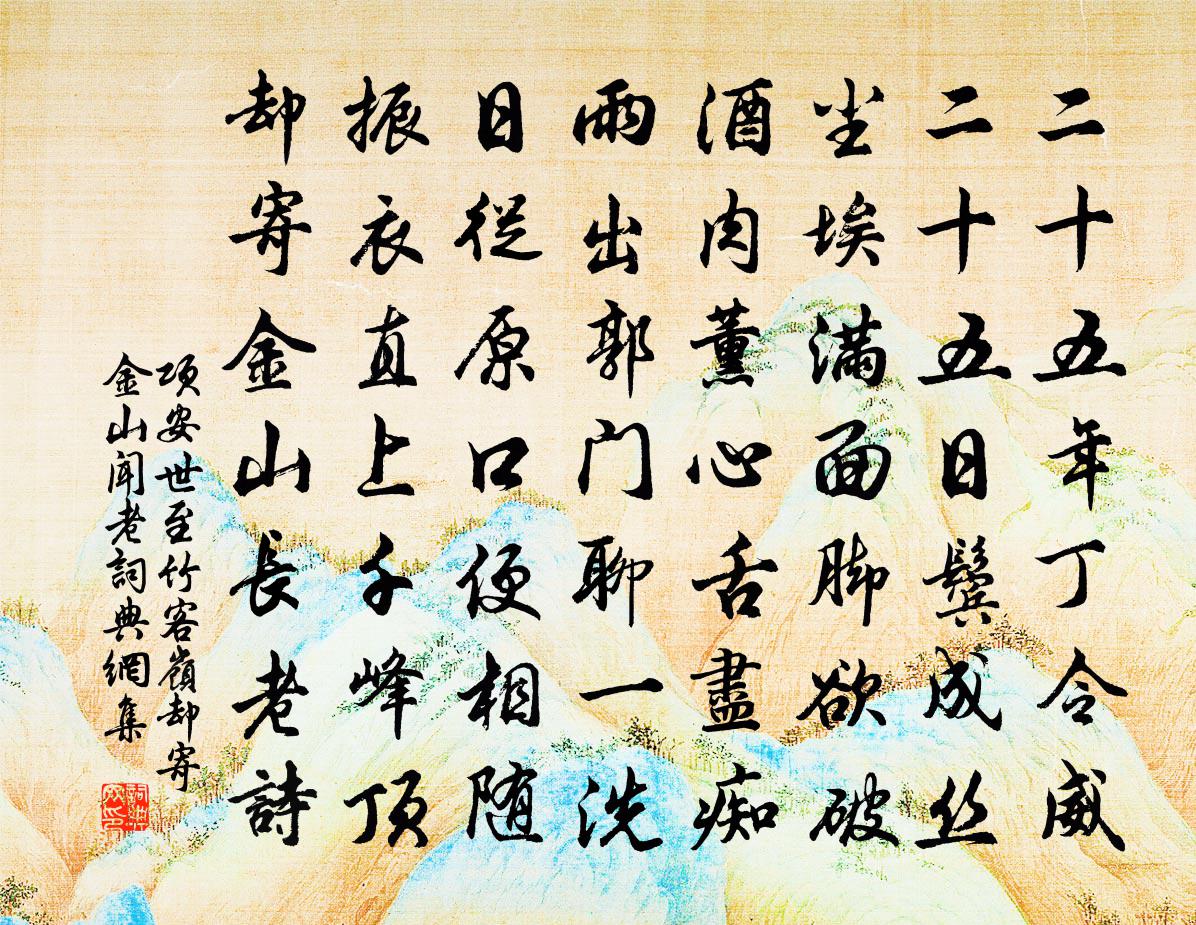 二十五年丁令威
二十五日鬢成丝
尘埃滿面脚欲破
酒肉薰心舌盡痴
雨出郭门聊一洗
日從原口便相随
振衣直上千峰顶
却寄金山長老詩
项安世至竹客嶺却寄
金山聞老詞典網集